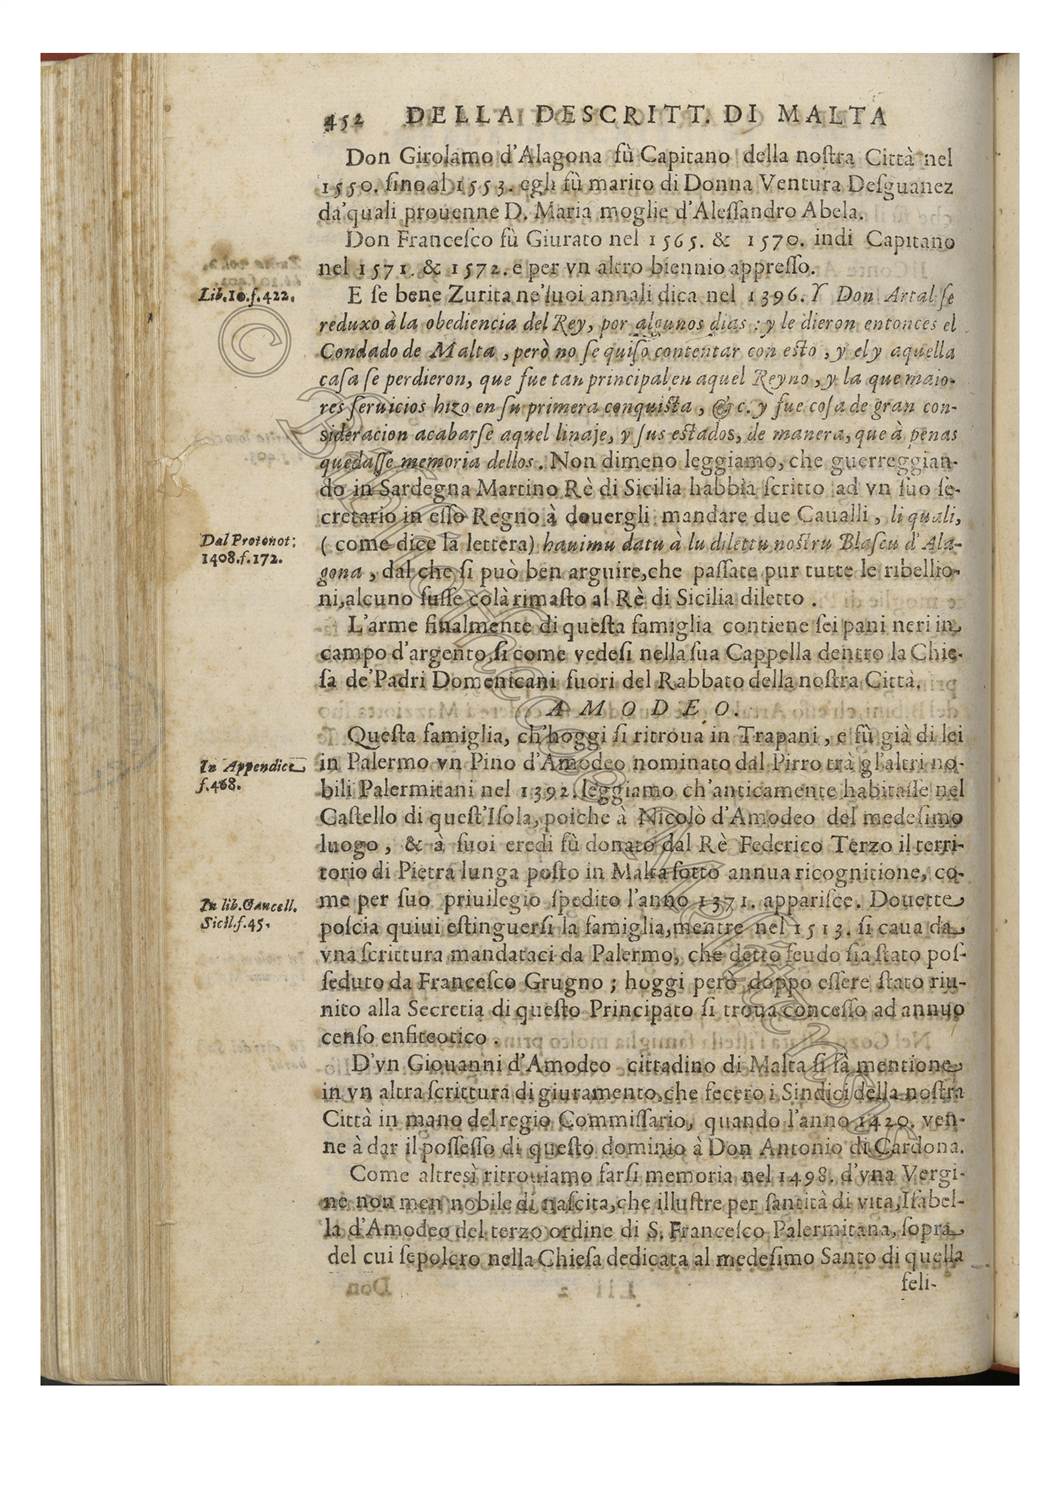 452 DELLA DESCRITT. DI MALTA
Don Girolamo d'Alagona fù Capitano della noſtra Città nel
1550. ſino al 1553. egli fù marito di Donna Ventura Deſguanez
da'quali prouenne D. Maria moglie d'Aleſſandro Abela.
Don Franceſco fù Giurato nel 1565. & 1570. indi Capitano
nel 1571. & 1572. e per vn altro biennio appreſſo.
Lib.10.f.422.
E ſe bene Zurita ne'ſuoi annali dica nel 1396. Y Don Artal ſe
reduxo à la obediencia del Rey, por algunos dias : y le dieron entonces el
Condado de Malta , però no ſe quiſo contentar con eſto , y el y aquella
caſa ſe perdieron, que fue tan principal en aquel Reyno , y la que maio-
res ſeruicios hizo en ſu primera conquiſta , &c. y fue coſa de gran con-
sideracion acabarſe aquel linaje, y ſus eſtados, de manera, que à penas
quedaſſe memoria dellos. Non dimeno leggiamo, che guerreggian-
do in Sardegna Martino Rè di Sicilia habbia ſcritto ad vn ſuo ſe-
cretario in eſſo Regno à douergli mandare due Caualli , li quali,
Dal Protonot:
1408.f.172.
( come dice la lettera) hauimu datu à lu dilettu noſtru Blaſcu d'Ala-
gona , dal che ſi può ben arguire, che paſſate pur tutte le ribellio-
ni, alcuno fuſſe colà rimaſto al Rè di Sicilia diletto .
L'arme finalmente di queſta famiglia contiene ſei pani neri in
campo d'argento, ſi come vedeſi nella ſua Cappella dentro la Chie-
ſa de'Padri Domenicani fuori del Rabbato della noſtra Città.
A M O D E O.
Queſta famiglia, ch'hoggi ſi ritroua in Trapani , e fù già di lei
In Appendice
f.468.
in Palermo vn Pino d'Amodeo nominato dal Pirro trà gl'altri no-
bili Palermitani nel 1392. leggiamo ch'anticamente habitaſſe nel
Caſtello di queſt'Iſola, poiche à Nicolò d'Amodeo del medeſimo
luogo , & à ſuoi eredi fù donato dal Rè Federico Terzo il terri-
torio di Pietra lunga poſto in Malta ſotto annua ricognitione, co-
In lib.Cancell.
Sicil.f.45.
me per ſuo priuilegio ſpedito l'anno 1371. appariſce. Douette
poſcia quiui eſtinguerſi la famiglia, mentre nel 1513. ſi caua da
vna ſcrittura mandataci da Palermo, che detto feudo ſia ſtato poſ-
ſeduto da Franceſco Grugno ; hoggi però doppo eſſere ſtato riu-
nito alla Secretia di queſto Principato ſi troua conceſſo ad annuo
cenſo enfiteotico .
D'vn Giouanni d'Amodeo cittadino di Malta ſi fà mentione
in vn altra ſcrittura di giuramento, che fecero i Sindici della noſtra
Città in mano del regio Commiſſario, quando l'anno 1420. ven-
ne à dar il poſſeſſo di queſto dominio à Don Antonio di Cardona.
Come altresì ritrouiamo farſi memoria nel 1498. d'vna Vergi-
ne non men nobile di naſcita, che illuſtre per ſantità di vita, Iſabel-
la d'Amodeo del terzo ordine di S. Franceſco Palermitana, ſopra
del cui ſepolcro nella Chieſa dedicata al medeſimo Santo di quella
feli-